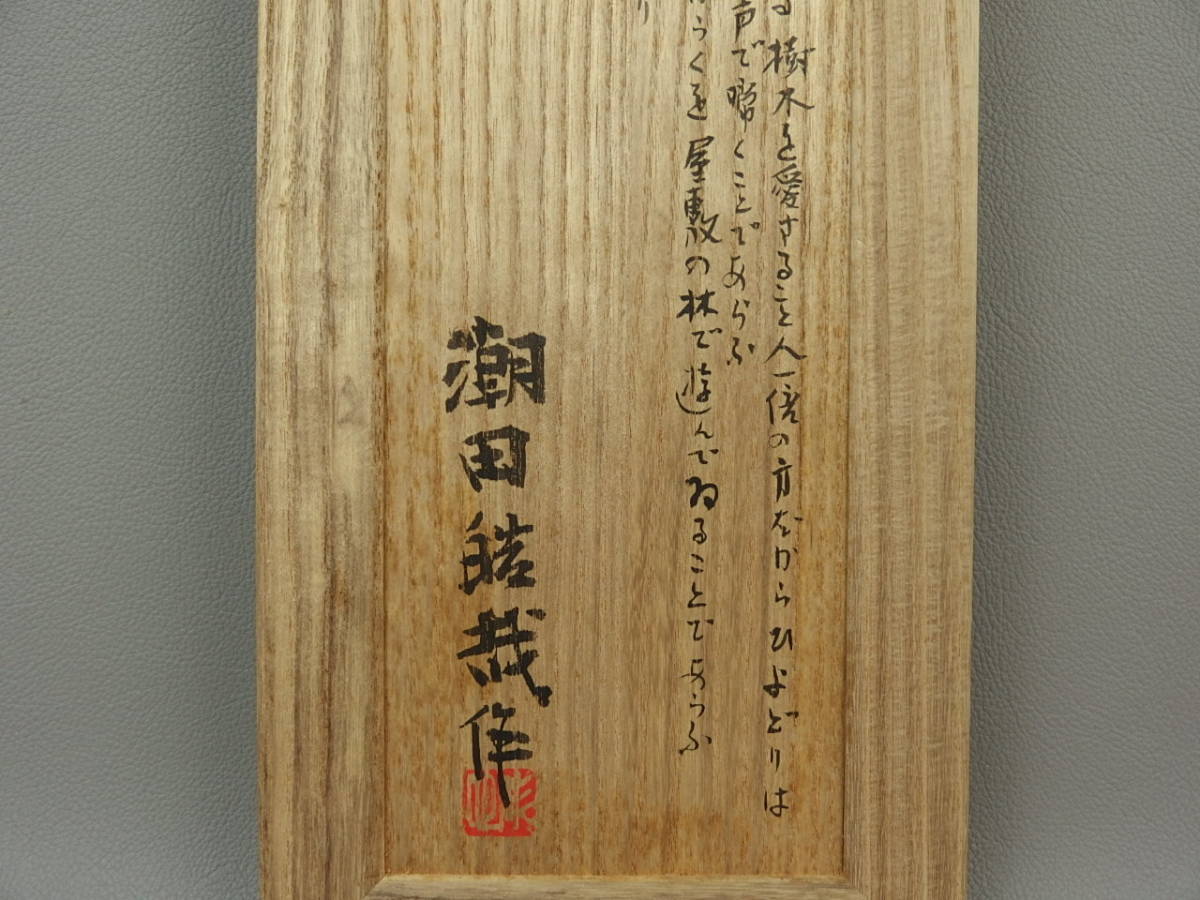 る樹木を愛すること人一倍の方だからひよどりは
声で啼くことであらふ
らくを屋敷の林で遊んでゐることであらふ
り
潮田皓哉作